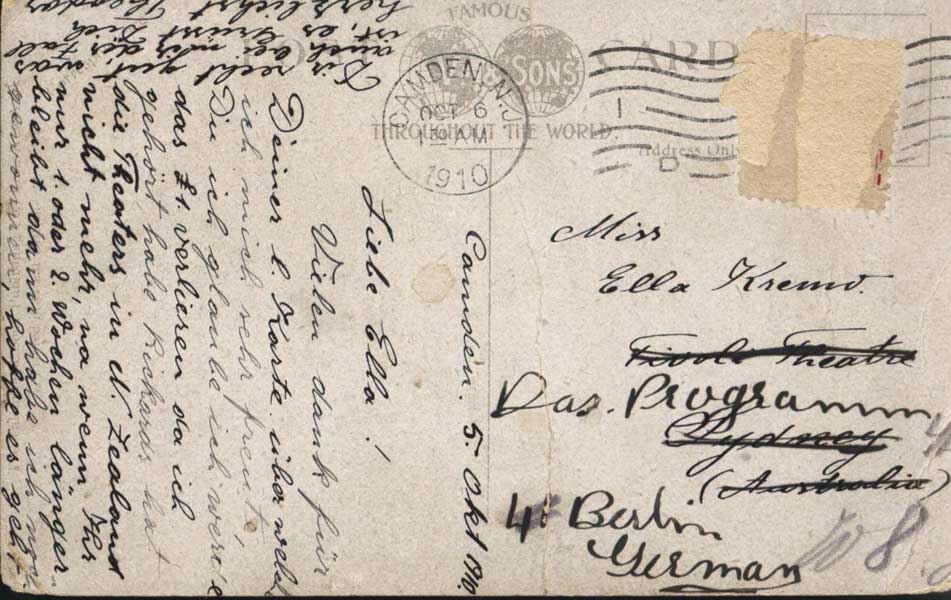 FAMOUS
& SONS
CARD
THROUGHOUT THE WORLD
Address Only
CAMDEN N.J.
OCT 6
AM
1910
Camden. 5. Okt 1910.
Liebe Ella!
Vielen dank für
Deiner l. Karte. über welche
ich mich sehr freute,
Du ich glaube ich werde
das £1. verlieren da ich
gehört habe Rickards hat
die Theaters in N. Zealand
nicht mehr, na wenn Ihr
nur 1. oder 2. Wochen länger
bleibt dann habe ich noch
gewonnen, hoffe es geht
Dir recht gut, was
auch bei mir der Fall
ist, es Grüsst Dich
herzlichst Theodor
Miss
Ella Kremo.
Tivoli Theatre
Das. Programm
Sydney
(Australia)
4 Berlin
German
W 8